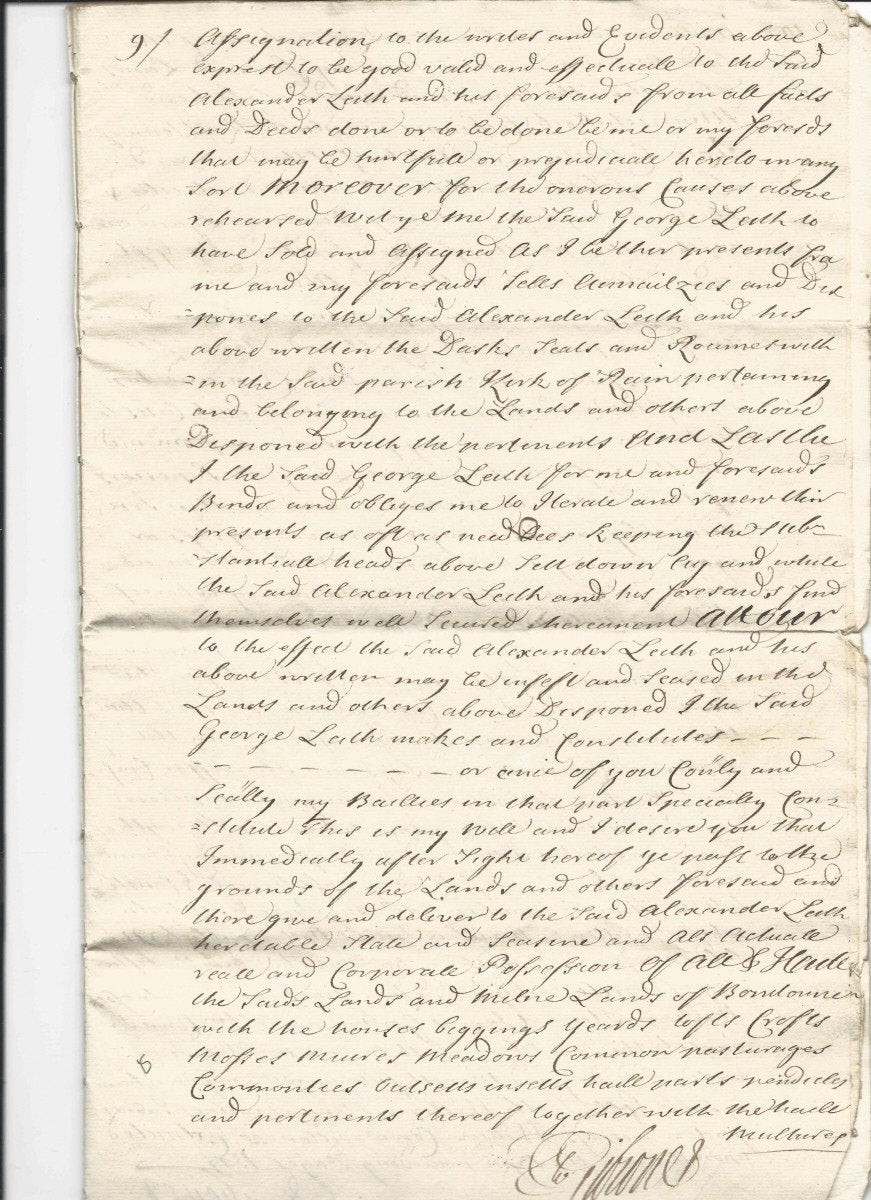 9/ Assignation to the writes and Evidents above
exprest to be good valid and effectuale to the Said
Alexander Leith and his foresaids from all facts
and Deeds done or to be done be me or my forsds
that may be hurtfull or prejudiciale hereto in any
Sort Moreover for the onerous Causes above
rehearsed Wit ye me the Said George Leith to
have Sold and Assigned As I be thir presents fra
me and my foresaids Sells Annailzies and Dis
=pones to the Said Alexander Leith and his
above written the Dasks Seats and Roumes with
=in the Said parish Kirk of Rain pertaining
and belonging to the Lands and others above
Disponed with the pertinents And Lastlie
I the Said George Leith for me and foresaids
Binds and obliges me to Iterate and renew thir
presents as oft as need Bees keeping the sub
stantiale heads above Sett down ay and while
the Said Alexander Leith and his foresaids find
themselves well Secured thereanent Attour
to the effect the Said Alexander Leith and his
above written may be infeft and Seased in the
Lands and others above Disponed I the Said
George Leith makes and Constitutes - - -
- - - - - - - or anie of you Coũly and
Seãlly my Baillies in that part Specially Con=
=stitute This is my Will and I desire you that
Immediatly after Sight hereof ye pass to the
grounds of the Lands and others foresaid and
there give and deliver to the Said Alexander Leith
heretable State and Seasine and Als Actuale
reale and Corporale Possession Of All & Haill
the Saids Lands and Milne Lands of
with the houses biggings yeards tofts Crofts
Mosses Muires Meadows Common pasturages
Commonties outsetts insetts haill parts pendicles
and pertinents thereof together with the haill
Multures